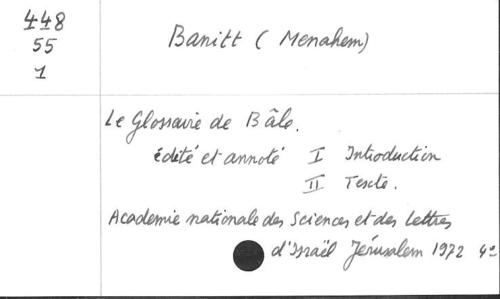 448
55
1
Banitt (Menahem)
Le Glossaire de Bâle.
édité et annoté I Introduction
II Texte.
Academie nationale des Sciences et des Lettres
d'Israël Jérusalem 1972 4°